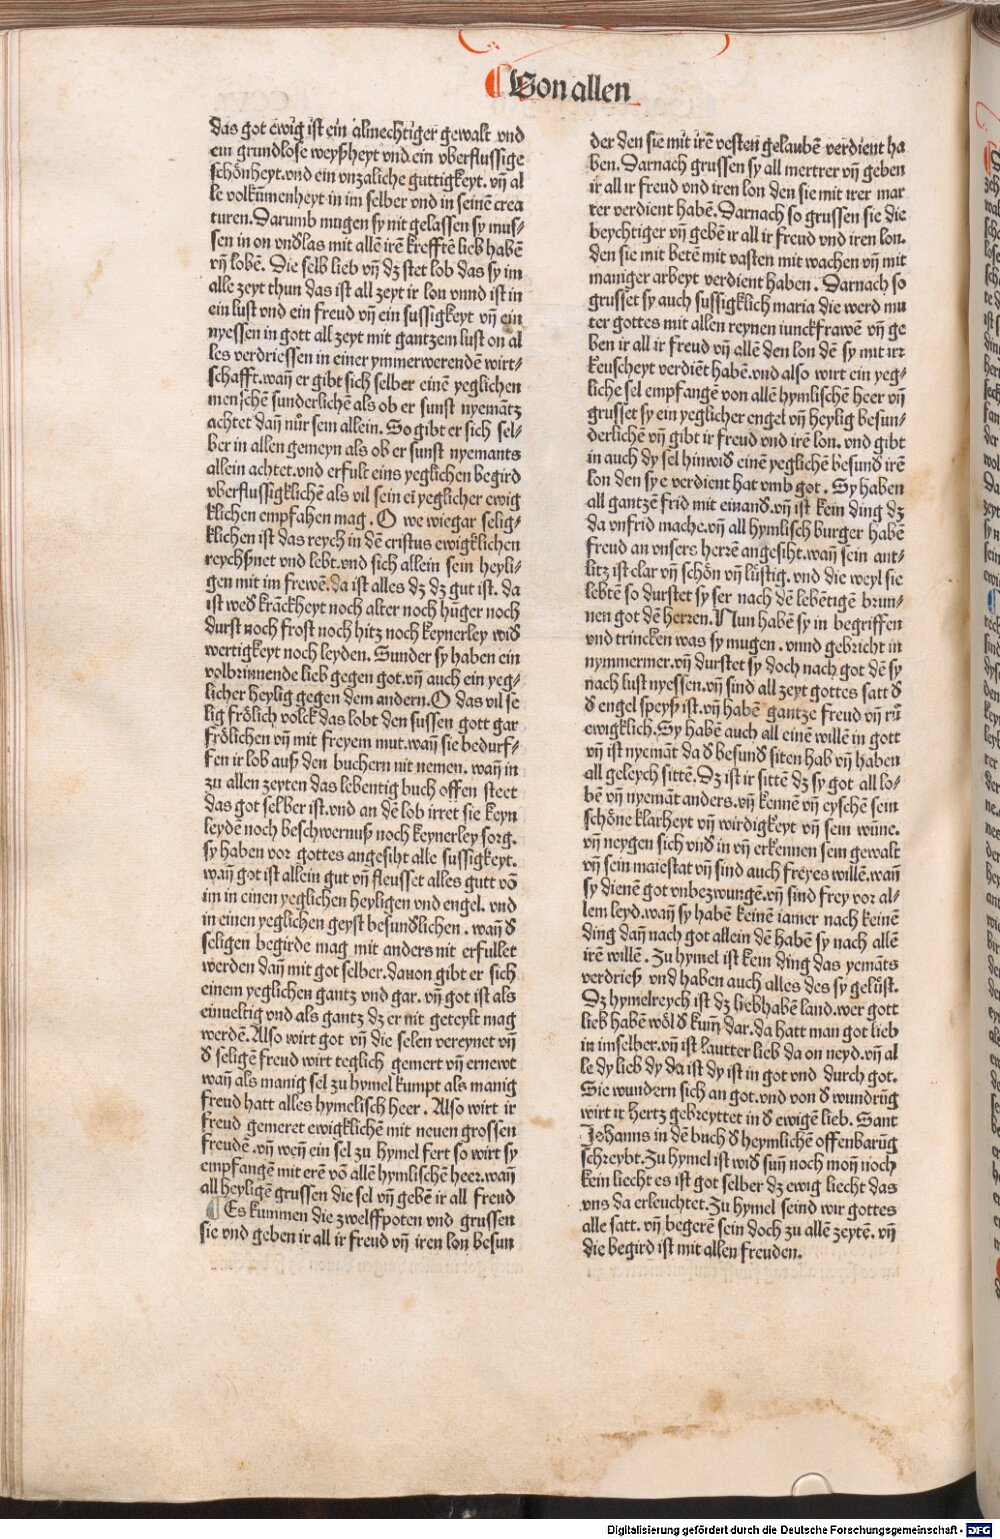 Von allen
das got ewig ist ein almechtiger gewalt vnd
ein grundlose weyßheyt vnd ein vberflussige
schönheyt. vnd ein vnzaliche guttigkeyt. vn̄ al
le volkūmenheyt in im selber vnd in seinē crea
turen. Darumb mugen sy nit gelassen sy mus⸗
sen in on vnd̕las mit allē irē krefftē lieb habē
vn̄ lobē. Die selb lieb vn̄ dz stet lob das sy im
alle zeyt thun das ist all zeyt ir lon vnnd ist in
ein lust vnd ein freud vn̄ ein sussigkeyt vn̄ ein
nyessen in gott all zeyt mit gantzem lust on al
les verdriessen in einer ymmerwerendē wirt⸗
schafft. wan̄ er gibt sich selber einē yeglichen
menschē sunderlichē als ob er sunst nyemātz
achtet dan̄ nůr sein allein. So gibt er sich sel⸗
ber in allen gemeyn als ob er sunst nyemants
allein achtet. vnd erfult eins yeglichen begird
vberflussigklichē als vil sein ei yeglicher ewig
klichen empfahen mag. O we wiegar selig⸗
klichen ist das reych in dē cristus ewigklichen
reychßnet vnd lebt. vnd sich allein sein heyli⸗
gen mit im frewē. da ist alles dz dz gut ist. da
ist wed̕ krāckheyt noch alter noch hūger noch
durst noch frost noch hitz noch keynerley wid̕
wertigkeyt noch leyden. Sunder sy haben ein
volbrinnende lieb gegen got. vn̄ auch ein yeg⸗
licher heylig gegen dem andern. O das vil se
lig frölich volck das lobt den sussen gott gar
frölichen vn̄ mit freyem mut. wan̄ sie bedurf⸗
fen ir lob auß den buchern nit nemen. wan̄ in
zu allen zeyten das lebentig buch offen steet
das got selber ist. vnd an dē lob irret sie keyn
leydē noch beschwernuß noch keynerley sorg.
sy haben vor gottes angesiht alle sussigkeyt.
wan̄ got ist allein gut vn̄ fleusset alles gutt vō
im in einen yeglichen heyligen vnd engel. vnd
in einen yeglichen geyst besund̕lichen. wan̄ d̕
seligen begirde mag mit anders nit erfullet
werden dan̄ mit got selber. dauon gibt er sich
einem yeglichen gantz vnd gar. vn̄ got ist als
einueltig vnd als gantz dz er nit geteylt mag
werdē. Also wirt got vn̄ die selen vereynet vn̄
d̕ seligē freud wirt teglich gemert vn̄ ernewt
wan̄ als manig sel zu hymel kumpt als manig
freud hatt alles hymelisch heer. Also wirt ir
freud gemeret ewigklichē mit neuen grossen
freudē. vn̄ wen̄ ein sel zu hymel fert so wirt sy
empfangē mit erē vō allē hymlischē heer. wan̄
all heyligē grussen die sel vn̄ gebē ir all freud
Es kummen die zwelffpoten vnd grussen
sie vnd geben ir all ir freud vn̄ iren lon besun
der den sie mit irē vesten gelaubē verdient ha
ben. Darnach grussen sy all mertrer vn̄ geben
ir all ir freud vnd iren lon den sie mit irer mar
ter verdient habē. Darnach so grussen sie die
beychtiger vn̄ gebē ir all ir freud vnd iren lon.
den sie mit betē mit vasten mit wachen vn̄ mit
maniger arbeyt verdient haben. Darnach so
grusset sy auch sussigklich maria die werd mu
ter gottes mit allen reynen iunckfrawē vn̄ ge
ben ir all ir freud vn̄ allē den lon dē sy mit irr
keuscheyt verdiēt habē. vnd also wirt ein yeg⸗
liche sel empfangē von allē hymlischē heer vn̄
grusset sy ein yeglicher engel vn̄ heylig besun⸗
derlichē vn̄ gibt ir freud vnd irē lon. vnd gibt
in auch dy sel hinwid̕ einē yeglichē besund̕ irē
lon den sy e verdient hat vmb got. Sy haben
all gantzē frid mit einand̕. vn̄ ist kein ding dz
da vnfrid mache. vn̄ all hymlisch burger habē
freud an vnsers herrē angesiht. wan̄ sein ant⸗
litz ist clar vn̄ schön vn̄ lüstig. vnd die weyl sie
lebtē so durstet sy ser nach dē lebētigē brun⸗
nen got dē herren. Nun habē sy in begriffen
vnd trincken was sy mugen. vnnd gebricht in
nymmermer. vn̄ durstet sy doch nach got dē sy
nach lust nyessen. vn̄ sind all zeyt gottes satt d̕
d̕ engel speyß ist. vn̄ habē gantze freud vn̄ rů
ewigklich. Sy habē auch all einē willē in gott
vn̄ ist nyemāt da d̕ besund̕ siten hab vn̄ haben
all geleych sittē. Dz ist ir sittē dz sy got all lo⸗
bē vn̄ nyemāt anders. vn̄ kennē vn̄ eyschē sein
schöne klarheyt vn̄ wirdigkeyt vn̄ sein wūne.
vn̄ neygen sich vnd̕ in vn̄ erkennen sein gewalt
vn̄ sein maiestat vn̄ sind auch freyes willē. wan̄
sy dienē got vnbezwungē. vn̄ sind frey vor al⸗
lem leyd. wan̄ sy habē keinē iamer nach keinē
ding dan̄ nach got allein dē habē sy nach allē
irē willē. Zu hymel ist kein ding das yemāts
verdrieß vnd haben auch alles des sy gelüst.
Dz hymelreych ist dz liebhabē land. wer gott
lieb habē wöl d̕ kum̄ dar. da hatt man got lieb
in imselber. vn̄ ist lautter lieb da on neyd. vn̄ al
le dy lieb dy da ist dy ist in got vnd durch got.
Sie wundern sich an got. vnd von d̕ wundrūg
wirt ir hertz gebreyttet in d̕ ewigē lieb. Sant
Johanns in dē buch d̕ heymlichē offenbarūg
schreybt. Zu hymel ist wid̕ sun̄ noch mon̄ noch
kein liecht es ist got selber dz ewig liecht das
vns da erleuchtet. Zu hymel seind wir gottes
alle satt. vn̄ begerē sein doch zu allē zeytē. vn̄
die begird ist mit allen freuden.
Digitalisierung gefördert durch die Deutsche Forschungsgemeinschaft - DFG